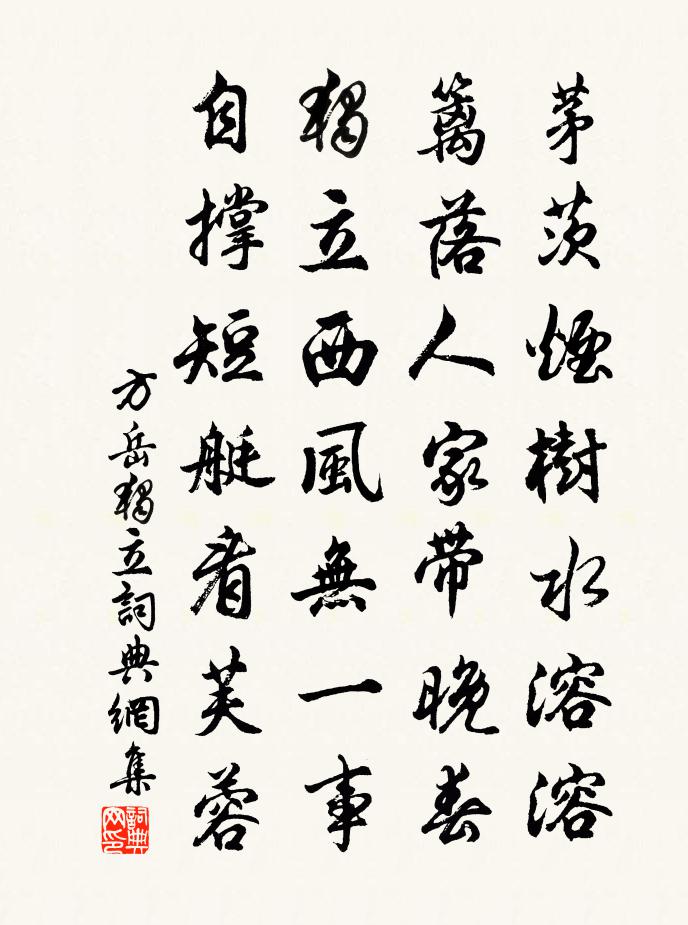 茅茨煙樹水溶溶
籬落人家帶晚舂
獨立西風無一事
自撐短艇看芙蓉
方岳獨立詞典網集
詞典网印